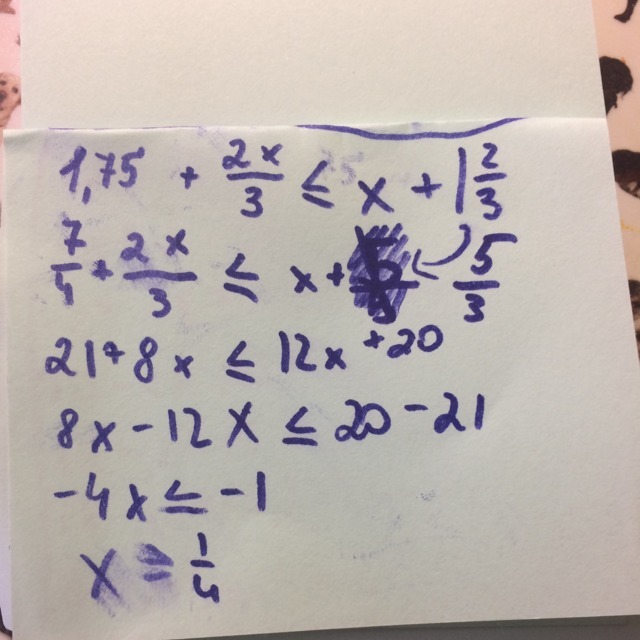 1,75 + 2x/3 ≤ x + 1 2/3
7/4 + 2x/3 ≤ x + 5/3
21 + 8x ≤ 12x + 20
8x - 12x ≤ 20 - 21
-4x ≤ -1
x ≥ 1/4